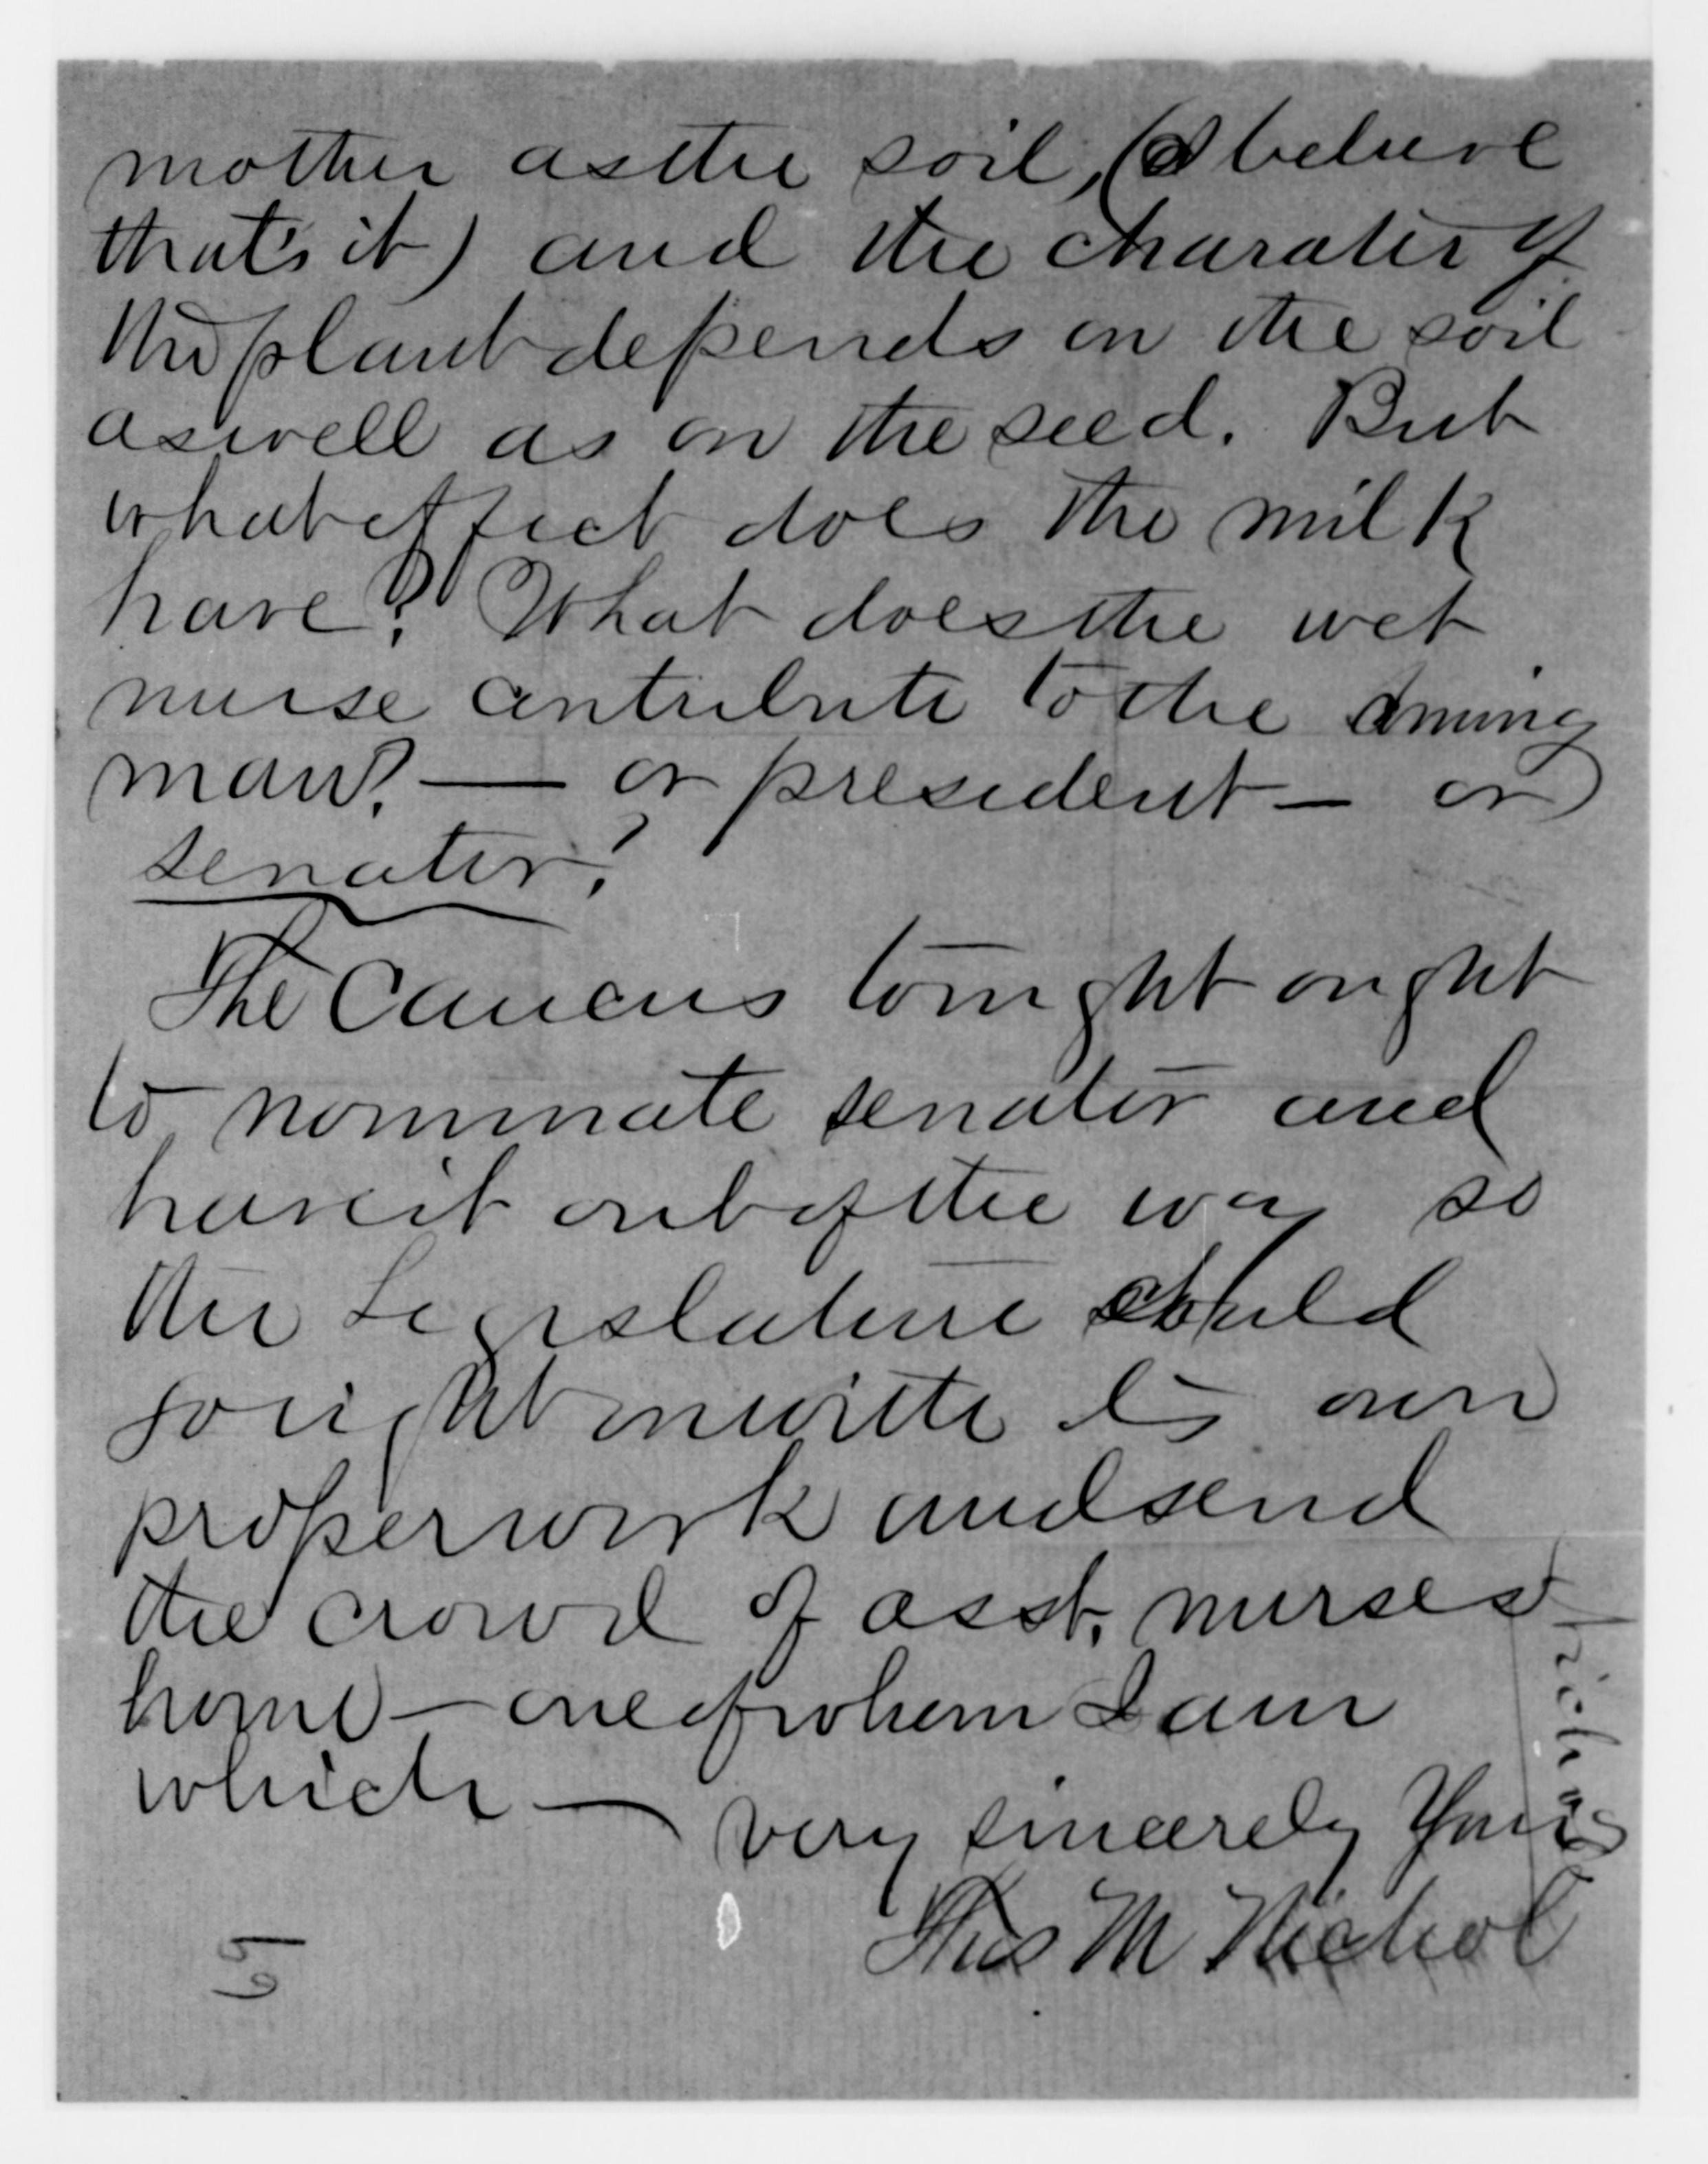 mother as the soil, (I believe
that's it) and the charater of
the plant depends on the soil
as well as on the seed. But
what effect does the milk
have? What does the wet
nurse contribute to the coming
man? — or president — or
senator?
The Caucus tonight ought
to nominate senator and
have it out of the way so
the Legislature could
go right on with its own
proper work and send
the crowd of asst. nurses
home — one of whom I am
which —
very sincerely Yours
Thos M Nichol
Nichol